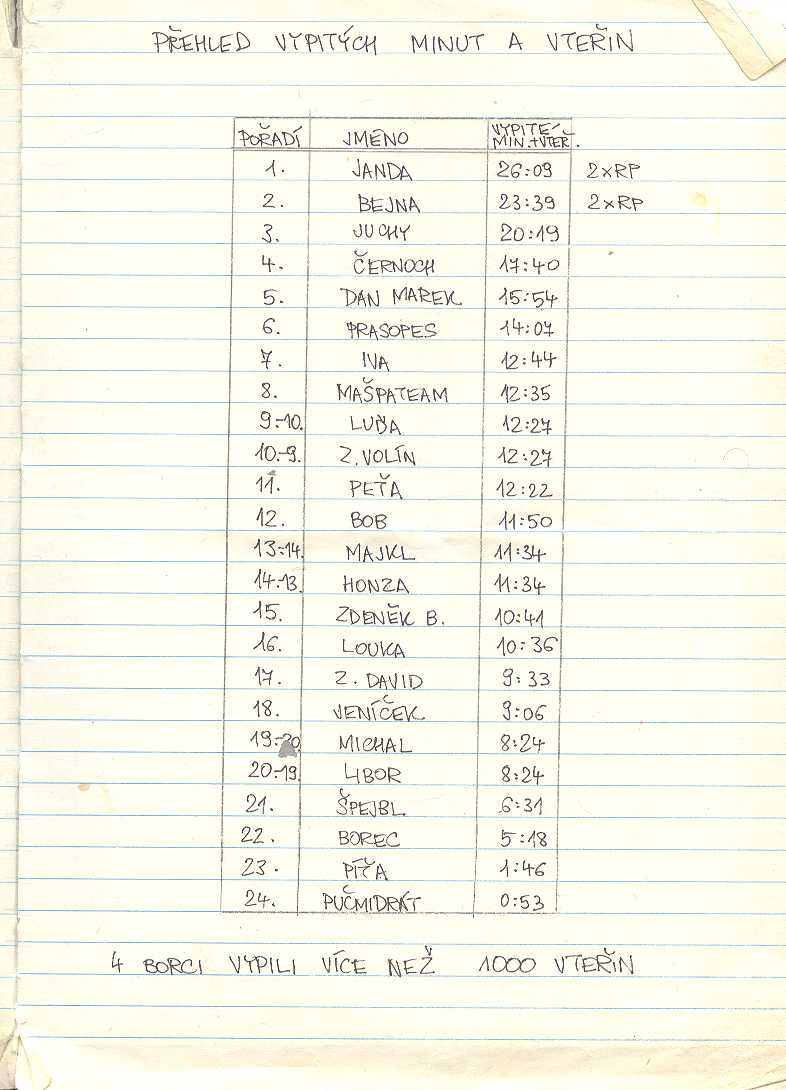 PŘEHLED VYPITÝCH MINUT A VTEŘIN
POŘADÍ JMÉNO VYPITÉ MIN.+VTEŘ.
1. JANDA 26:09 2xRP
2. BEJNA 23:39 2xRP
3. JUCHY 20:19
4. ČERNOCH 17:40
5. DAN MAREK 15:54
6. PRASOPES 14:07
7. IVA 12:44
8. MAŠPATEAM 12:35
9.-10. LUĎA 12:27
10.-9. Z.VOLÍN 12:27
11. PEŤA 12:22
12. BOB 11:50
13.-14. MAJKL 11:34
14.-13. HONZA 11:34
15. ZDENĚK B. 10:41
16. LOUKA 10:36
17. Z. DAVID 9:33
18. VENÍČEK 9:06
19.-20. MICHAL 8:24
20.-19. LIBOR 8:24
21. ŠPEJBL 6:31
22. BOREC 5:18
23. PÍŤA 1:46
24. PUČMIDRÁT 0:53
4 BORCI VYPILI VÍCE NEŽ 1000 VTEŘIN